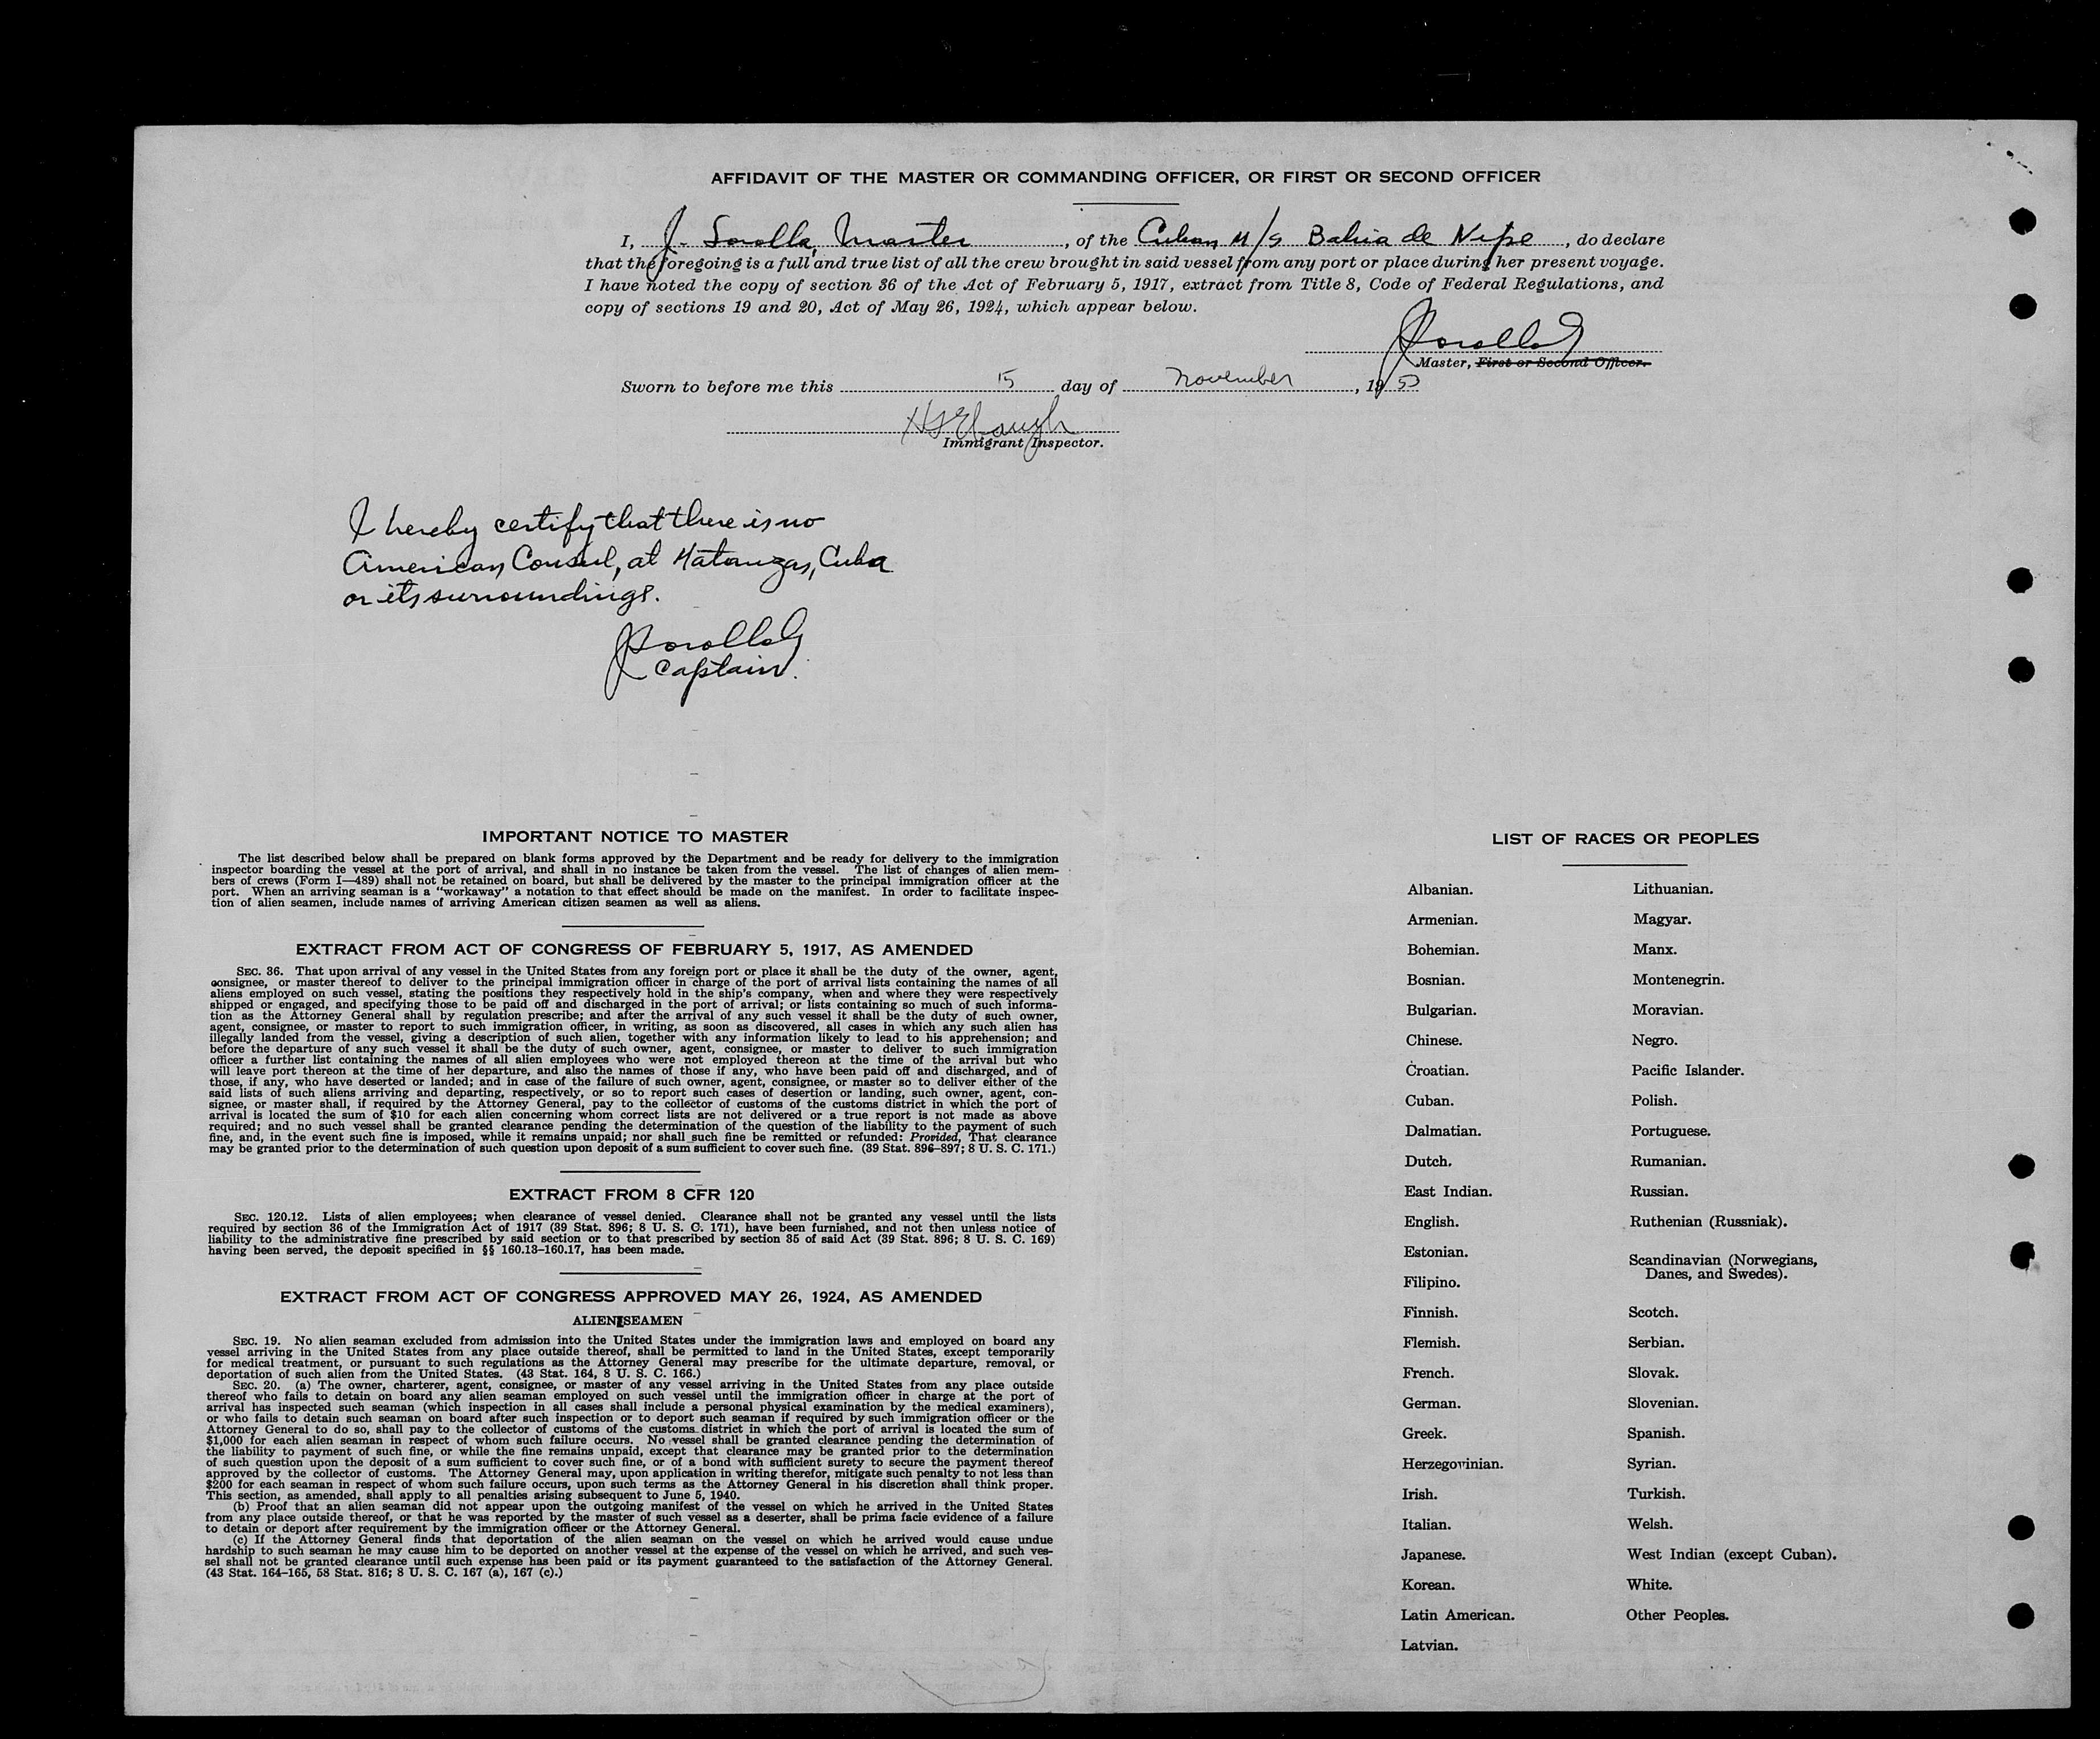 AFFIDAVIT OF THE MASTER OR COMMANDING OFFICER, OR FIRST OR SECOND OFFICER
I, J. Sorolla, Master, of the Cuban M/S Bahia de Nipe, do declare
that the foregoing is a full and true list of all the crew brought in said vessel from any port or place during her present voyage.
I have noted the copy of section 36 of the Act of February 5, 1917, extract from Title 8, Code of Federal Regulations, and
copy of sections 19 and 20, Act of May 26, 1924, which appear below.
JSorolla
Master, First or Second Officer.
Sworn to before me this 15 day of November, 1950
Immigrant Inspector.
I hereby certify that there is no
American Consul, at Matanzas, Cuba
or its surroundings.
JSorolla
Captain.
IMPORTANT NOTICE TO MASTER
The list described below shall be prepared on blank forms approved by the Department and be ready for delivery to the immigration
inspector boarding the vessel at the port of arrival, and shall in no instance be taken from the vessel. The list of changes of alien mem-
bers of crews (Form I—489) shall not be retained on board, but shall be delivered by the master to the principal immigration officer at the
port. When an arriving seaman is a "workaway" a notation to that effect should be made on the manifest. In order to facilitate inspec-
tion of alien seamen, include names of arriving American citizen seamen as well as aliens.
EXTRACT FROM ACT OF CONGRESS OF FEBRUARY 5, 1917, AS AMENDED
SEC. 36. That upon arrival of any vessel in the United States from any foreign port or place it shall be the duty of the owner, agent,
consignee, or master thereof to deliver to the principal immigration officer in charge of the port of arrival lists containing the names of all
aliens employed on such vessel, stating the positions they respectively hold in the ship's company, when and where they were respectively
shipped or engaged, and specifying those to be paid off and discharged in the port of arrival; or lists containing so much of such informa-
tion as the Attorney General shall by regulation prescribe; and after the arrival of any such vessel it shall be the duty of such owner,
agent, consignee, or master to report to such immigration officer, in writing, as soon as discovered, all cases in which any such alien has
illegally landed from the vessel, giving a description of such alien, together with any information likely to lead to his apprehension; and
before the departure of any such vessel it shall be the duty of such owner, agent, consignee, or master to deliver to such immigration
officer a further list containing the names of all alien employees who were not employed thereon at the time of the arrival but who
will leave port thereon at the time of her departure, and also the names of those if any, who have been paid off and discharged, and of
those, if any, who have deserted or landed; and in case of the failure of such owner, agent, consignee, or master so to deliver either of the
said lists of such aliens arriving and departing, respectively, or so to report such cases of desertion or landing, such owner, agent, con-
signee, or master shall, if required by the Attorney General, pay to the collector of customs of the customs district in which the port of
arrival is located the sum of $10 for each alien concerning whom correct lists are not delivered or a true report is not made as above
required; and no such vessel shall be granted clearance pending the determination of the question of the liability to the payment of such
fine, and, in the event such fine is imposed, while it remains unpaid; nor shall such fine be remitted or refunded: Provided, That clearance
may be granted prior to the determination of such question upon deposit of a sum sufficient to cover such fine. (39 Stat. 896–897; 8 U. S. C. 171.)
EXTRACT FROM 8 CFR 120
SEC. 120.12. Lists of alien employees; when clearance of vessel denied. Clearance shall not be granted any vessel until the lists
required by section 36 of the Immigration Act of 1917 (39 Stat. 896; 8 U. S. C. 171), have been furnished, and not then unless notice of
liability to the administrative fine prescribed by said section or to that prescribed by section 35 of said Act (39 Stat. 896; 8 U. S. C. 169)
having been served, the deposit specified in §§ 160.13–160.17, has been made.
EXTRACT FROM ACT OF CONGRESS APPROVED MAY 26, 1924, AS AMENDED
ALIEN SEAMEN
SEC. 19. No alien seaman excluded from admission into the United States under the immigration laws and employed on board any
vessel arriving in the United States from any place outside thereof, shall be permitted to land in the United States, except temporarily
for medical treatment, or pursuant to such regulations as the Attorney General may prescribe for the ultimate departure, removal, or
deportation of such alien from the United States. (43 Stat. 164, 8 U. S. C. 166.)
SEC. 20. (a) The owner, charterer, agent, consignee, or master of any vessel arriving in the United States from any place outside
thereof who fails to detain on board any alien seaman employed on such vessel until the immigration officer in charge at the port of
arrival has inspected such seaman (which inspection in all cases shall include a personal physical examination by the medical examiners),
or who fails to detain such seaman on board after such inspection or to deport such seaman if required by such immigration officer or the
Attorney General to do so, shall pay to the collector of customs of the customs district in which the port of arrival is located the sum of
$1,000 for each alien seaman in respect of whom such failure occurs. No vessel shall be granted clearance pending the determination of
the liability to payment of such fine, or while the fine remains unpaid, except that clearance may be granted prior to the determination
of such question upon the deposit of a sum sufficient to cover such fine, or of a bond with sufficient surety to secure the payment thereof
approved by the collector of customs. The Attorney General may, upon application in writing therefor, mitigate such penalty to not less than
$200 for each seaman in respect of whom such failure occurs, upon such terms as the Attorney General in his discretion shall think proper.
This section, as amended, shall apply to all penalties arising subsequent to June 5, 1940.
(b) Proof that an alien seaman did not appear upon the outgoing manifest of the vessel on which he arrived in the United States
from any place outside thereof, or that he was reported by the master of such vessel as a deserter, shall be prima facie evidence of a failure
to detain or deport after requirement by the immigration officer or the Attorney General.
(c) If the Attorney General finds that deportation of the alien seaman on the vessel on which he arrived would cause undue
hardship to such seaman he may cause him to be deported on another vessel at the expense of the vessel on which he arrived, and such ves-
sel shall not be granted clearance until such expense has been paid or its payment guaranteed to the satisfaction of the Attorney General.
(43 Stat. 164–165, 58 Stat. 816; 8 U. S. C. 167 (a), 167 (c).)
LIST OF RACES OR PEOPLES
Albanian.
Armenian.
Bohemian.
Bosnian.
Bulgarian.
Chinese.
Croatian.
Cuban.
Dalmatian.
Dutch.
East Indian.
English.
Estonian.
Filipino.
Finnish.
Flemish.
French.
German.
Greek.
Herzegovinian.
Irish.
Italian.
Japanese.
Korean.
Latin American.
Latvian.
Lithuanian.
Magyar.
Manx.
Montenegrin.
Moravian.
Negro.
Pacific Islander.
Polish.
Portuguese.
Rumanian.
Russian.
Ruthenian (Russniak).
Scandinavian (Norwegians,
Danes, and Swedes).
Scotch.
Serbian.
Slovak.
Slovenian.
Spanish.
Syrian.
Turkish.
Welsh.
West Indian (except Cuban).
White.
Other Peoples.